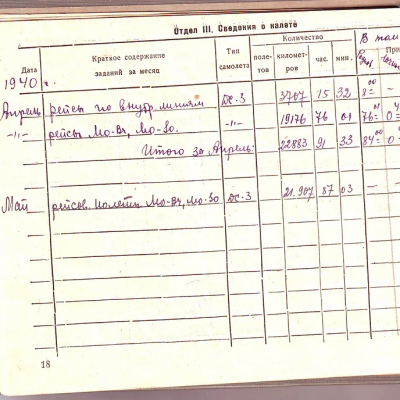 Отдел III. Сведения о налете
Дата
Краткое содержание заданий за месяц
Тип самолета
Количество
полетов
километров
час.
мин.
В том
При
1940 г.
Апрель рейсы по внутр. линиям ДС-3 3707 15 32 8=00 —
-"- рейсы Мо-Вч, Мо-Зо. -"- 19176 76 01 76=
Итого за Апрель: 22883 91 33 84=00
Май рейсов. полеты Мо-Вч, Мо-Зо ДС-3 21.907 87 03 — —
18